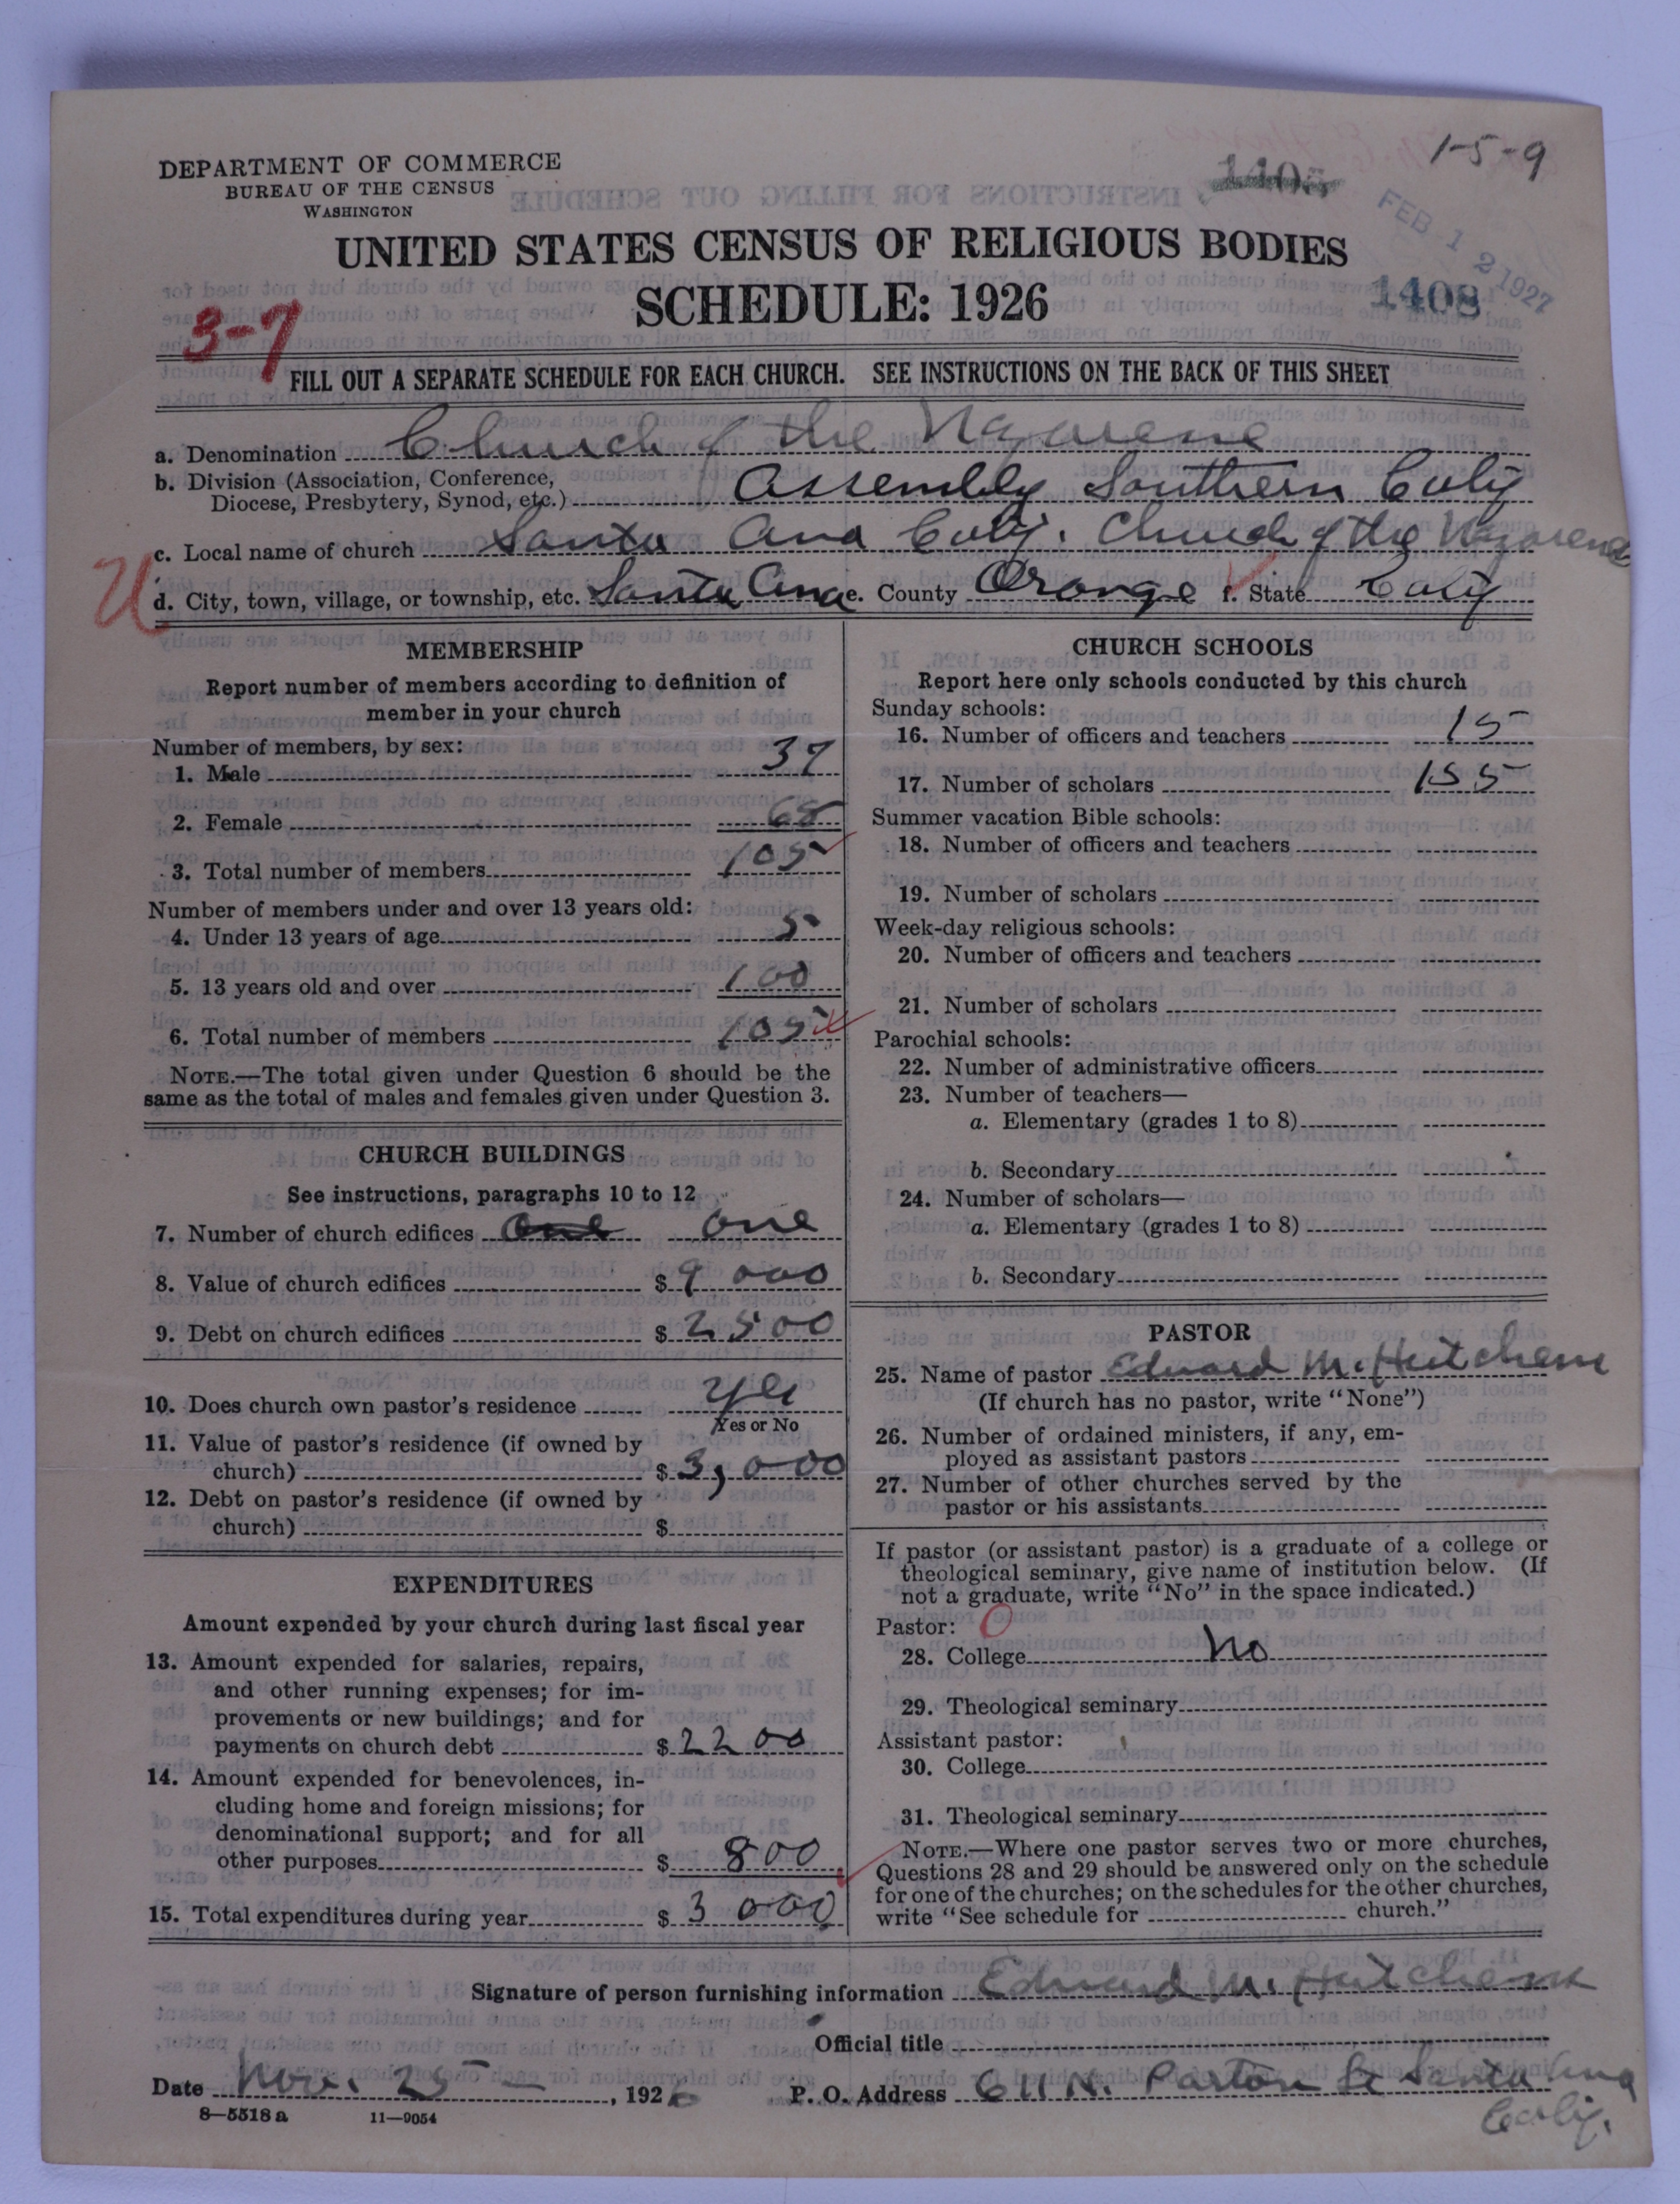 1-5-9
DEPARTMENT OF COMMERCE
BUREAU OF THE CENSUS
WASHINGTON
1405
FEB 12 1927
UNITED STATES CENSUS OF RELIGIOUS BODIES
SCHEDULE: 1926
1408
3-7
FILL OUT A SEPARATE SCHEDULE FOR EACH CHURCH. SEE INSTRUCTIONS ON THE BACK OF THIS SHEET
a. Denomination Church of the Nazarene
b. Division (Association, Conference,
Diocese, Presbytery, Synod, etc.) Assembly Southern Calif
c. Local name of church Santa Ana Calif. Church of the Nazarene
U
d. City, town, village, or township, etc. Santa Ana e. County Orange f. State Calif
MEMBERSHIP
Report number of members according to definition of
member in your church
Number of members, by sex:
1. Male 37
2. Female 68
3. Total number of members 105
Number of members under and over 13 years old:
4. Under 13 years of age 5
5. 13 years old and over 100
6. Total number of members 105
NOTE.—The total given under Question 6 should be the
same as the total of males and females given under Question 3.
CHURCH BUILDINGS
See instructions, paragraphs 10 to 12
7. Number of church edifices One one
8. Value of church edifices $ 9000
9. Debt on church edifices $ 2500
10. Does church own pastor's residence yes
Yes or No
11. Value of pastor's residence (if owned by
church) $ 3,000
12. Debt on pastor's residence (if owned by
church) $
EXPENDITURES
Amount expended by your church during last fiscal year
13. Amount expended for salaries, repairs,
and other running expenses; for im-
provements or new buildings; and for
payments on church debt $ 2200
14. Amount expended for benevolences, in-
cluding home and foreign missions; for
denominational support; and for all
other purposes $ 800
15. Total expenditures during year $ 3000
CHURCH SCHOOLS
Report here only schools conducted by this church
Sunday schools:
16. Number of officers and teachers 15
17. Number of scholars 155
Summer vacation Bible schools:
18. Number of officers and teachers
19. Number of scholars
Week-day religious schools:
20. Number of officers and teachers
21. Number of scholars
Parochial schools:
22. Number of administrative officers
23. Number of teachers—
a. Elementary (grades 1 to 8)
b. Secondary
24. Number of scholars—
a. Elementary (grades 1 to 8)
b. Secondary
PASTOR
25. Name of pastor Edward M. Hutchens
(If church has no pastor, write "None")
26. Number of ordained ministers, if any, em-
ployed as assistant pastors
27. Number of other churches served by the
pastor or his assistants
If pastor (or assistant pastor) is a graduate of a college or
theological seminary, give name of institution below. (If
not a graduate, write "No" in the space indicated.)
Pastor: 0
28. College No
29. Theological seminary
Assistant pastor:
30. College
31. Theological seminary
NOTE.—Where one pastor serves two or more churches,
Questions 28 and 29 should be answered only on the schedule
for one of the churches; on the schedules for the other churches,
write "See schedule for church."
Signature of person furnishing information Edward M. Hutchens
Official title
Date Nov. 25 —, 1926 P. O. Address 611 N. Parton St Santa Ana
Calif.
8—5518a 11—9054